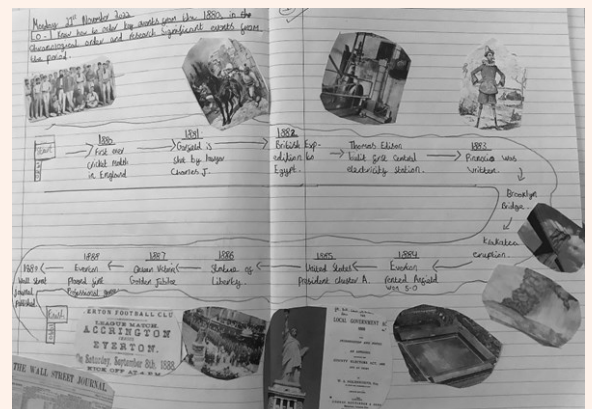 Monday 21st November 2022
LO - I know how to order key events from the 1880s in
chronological order and research significant events from
the period.
Start
1880
First ever
cricket match
in England
1881
Garfield is
shot by lawyer
Charles J.
1882
British Exp-
edition to
Egypt.
Thomas Edison
built first central
electricity station.
1883
Pinocchio was
written.
Brooklyn
Bridge.
Krakatoa
eruption.
1884
Everton
rented Anfield
won 5-0
1885
United States
president chester A.
1886
Statue of
Liberty
1887
Queen Victoria
Golden Jubilee
1888
Everton
Played first
Professional
1889
Wall Street
Journal
published
ERTON FOOTBALL CLU
LEAGUE MATCH.
ACCRINGTON
EVERTON.
On Saturday, September 8th, 1888.
KICK OFF AT
THE WALL STREET JOURNAL
LOCAL GOVERNMENT